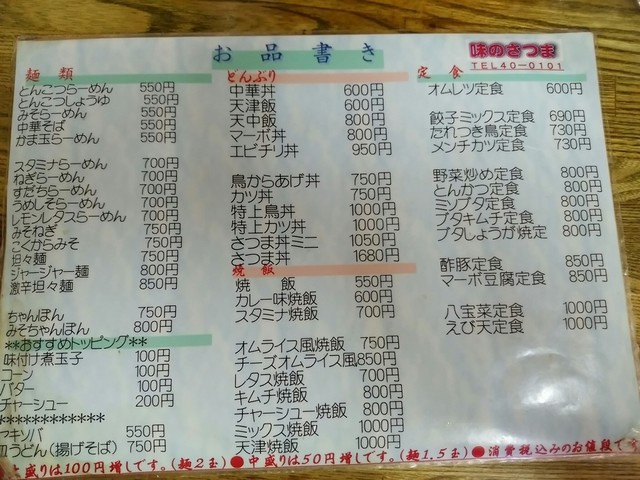 お品書き
味のさつま
TEL40-0101
麺類
とんこつらーめん 550円
とんこつしょうゆ 550円
みそらーめん 550円
中華そば 550円
かま玉らーめん 550円
スタミナらーめん 700円
ねぎらーめん 700円
すだちらーめん 700円
うめしそらーめん 700円
レモンレタスらーめん 700円
みそねぎ 750円
こくからみそ 750円
坦々麺 750円
ジャージャー麺 800円
激辛坦々麺 850円
ちゃんぽん 750円
みそちゃんぽん 800円
**おすすめトッピング**
味付け煮玉子 100円
コーン 100円
バター 100円
チャーシュー 200円
************
ヤキソバ 550円
皿うどん(揚げそば) 750円
どんぶり
中華丼 600円
天津飯 600円
天中飯 800円
マーボ丼 800円
エビチリ丼 950円
鳥からあげ丼 750円
カツ丼 750円
特上鳥丼 1000円
特上カツ丼 1000円
さつま丼ミニ 1050円
さつま丼 1680円
焼飯
焼飯 550円
カレー味焼飯 600円
スタミナ焼飯 700円
オムライス風焼飯 750円
チーズオムライス風 850円
レタス焼飯 700円
キムチ焼飯 800円
チャーシュー焼飯 800円
ミックス焼飯 1000円
天津焼飯 1000円
定食
オムレツ定食 600円
餃子ミックス定食 690円
たれつき鳥定食 730円
メンチカツ定食 730円
野菜炒め定食 800円
とんかつ定食 800円
ミソブタ定食 800円
ブタキムチ定食 800円
ブタしょうが焼定 800円
酢豚定食 850円
マーボ豆腐定食 850円
八宝菜定食 1000円
えび天定食 1000円
大盛りは100円増しです。(麺2玉)●中盛りは50円増しです。(麺1.5玉)●消費税込みのお値段です